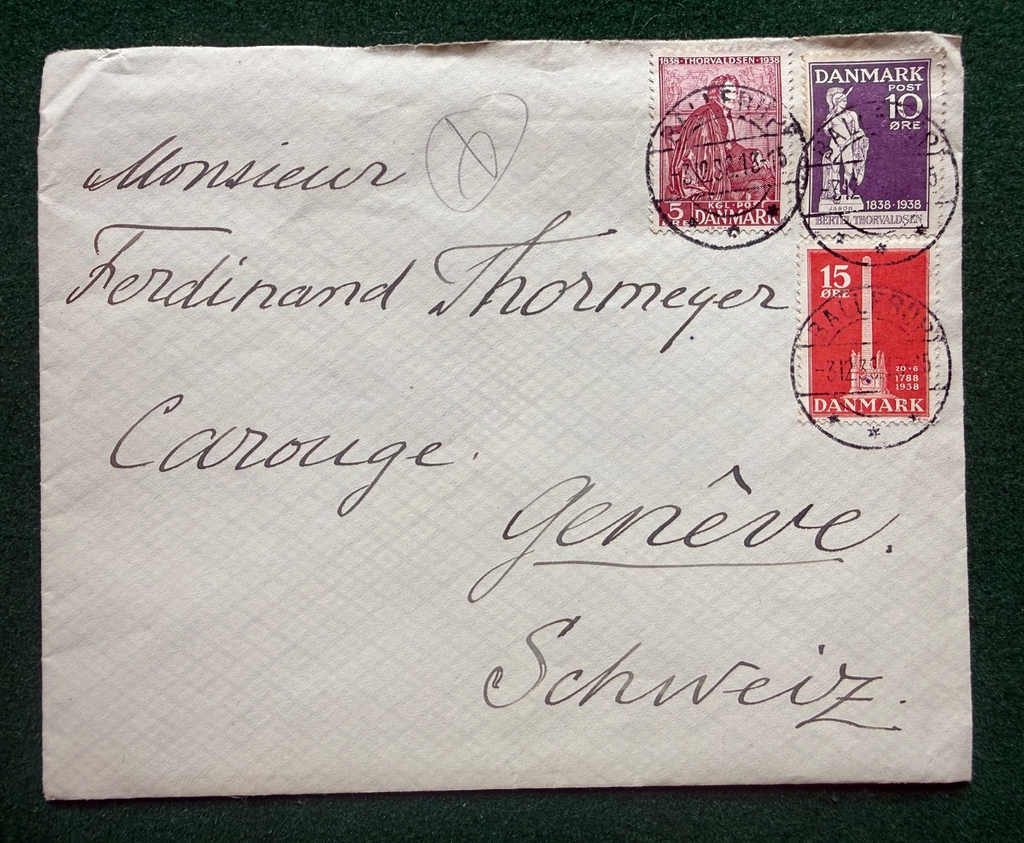 1838 · THORVALDSEN · 1938
5 ØRE
KGL · POST
DANMARK
DANMARK
POST
10
ØRE
JASON
1838 · 1938
BERTEL THORVALDSEN
BALLERUP
15
ØRE
20 · 6
1788
1938
DANMARK
BALLERUP
Monsieur
Ferdinand Thormeyer
Carouge.
Genêve.
Schweiz.